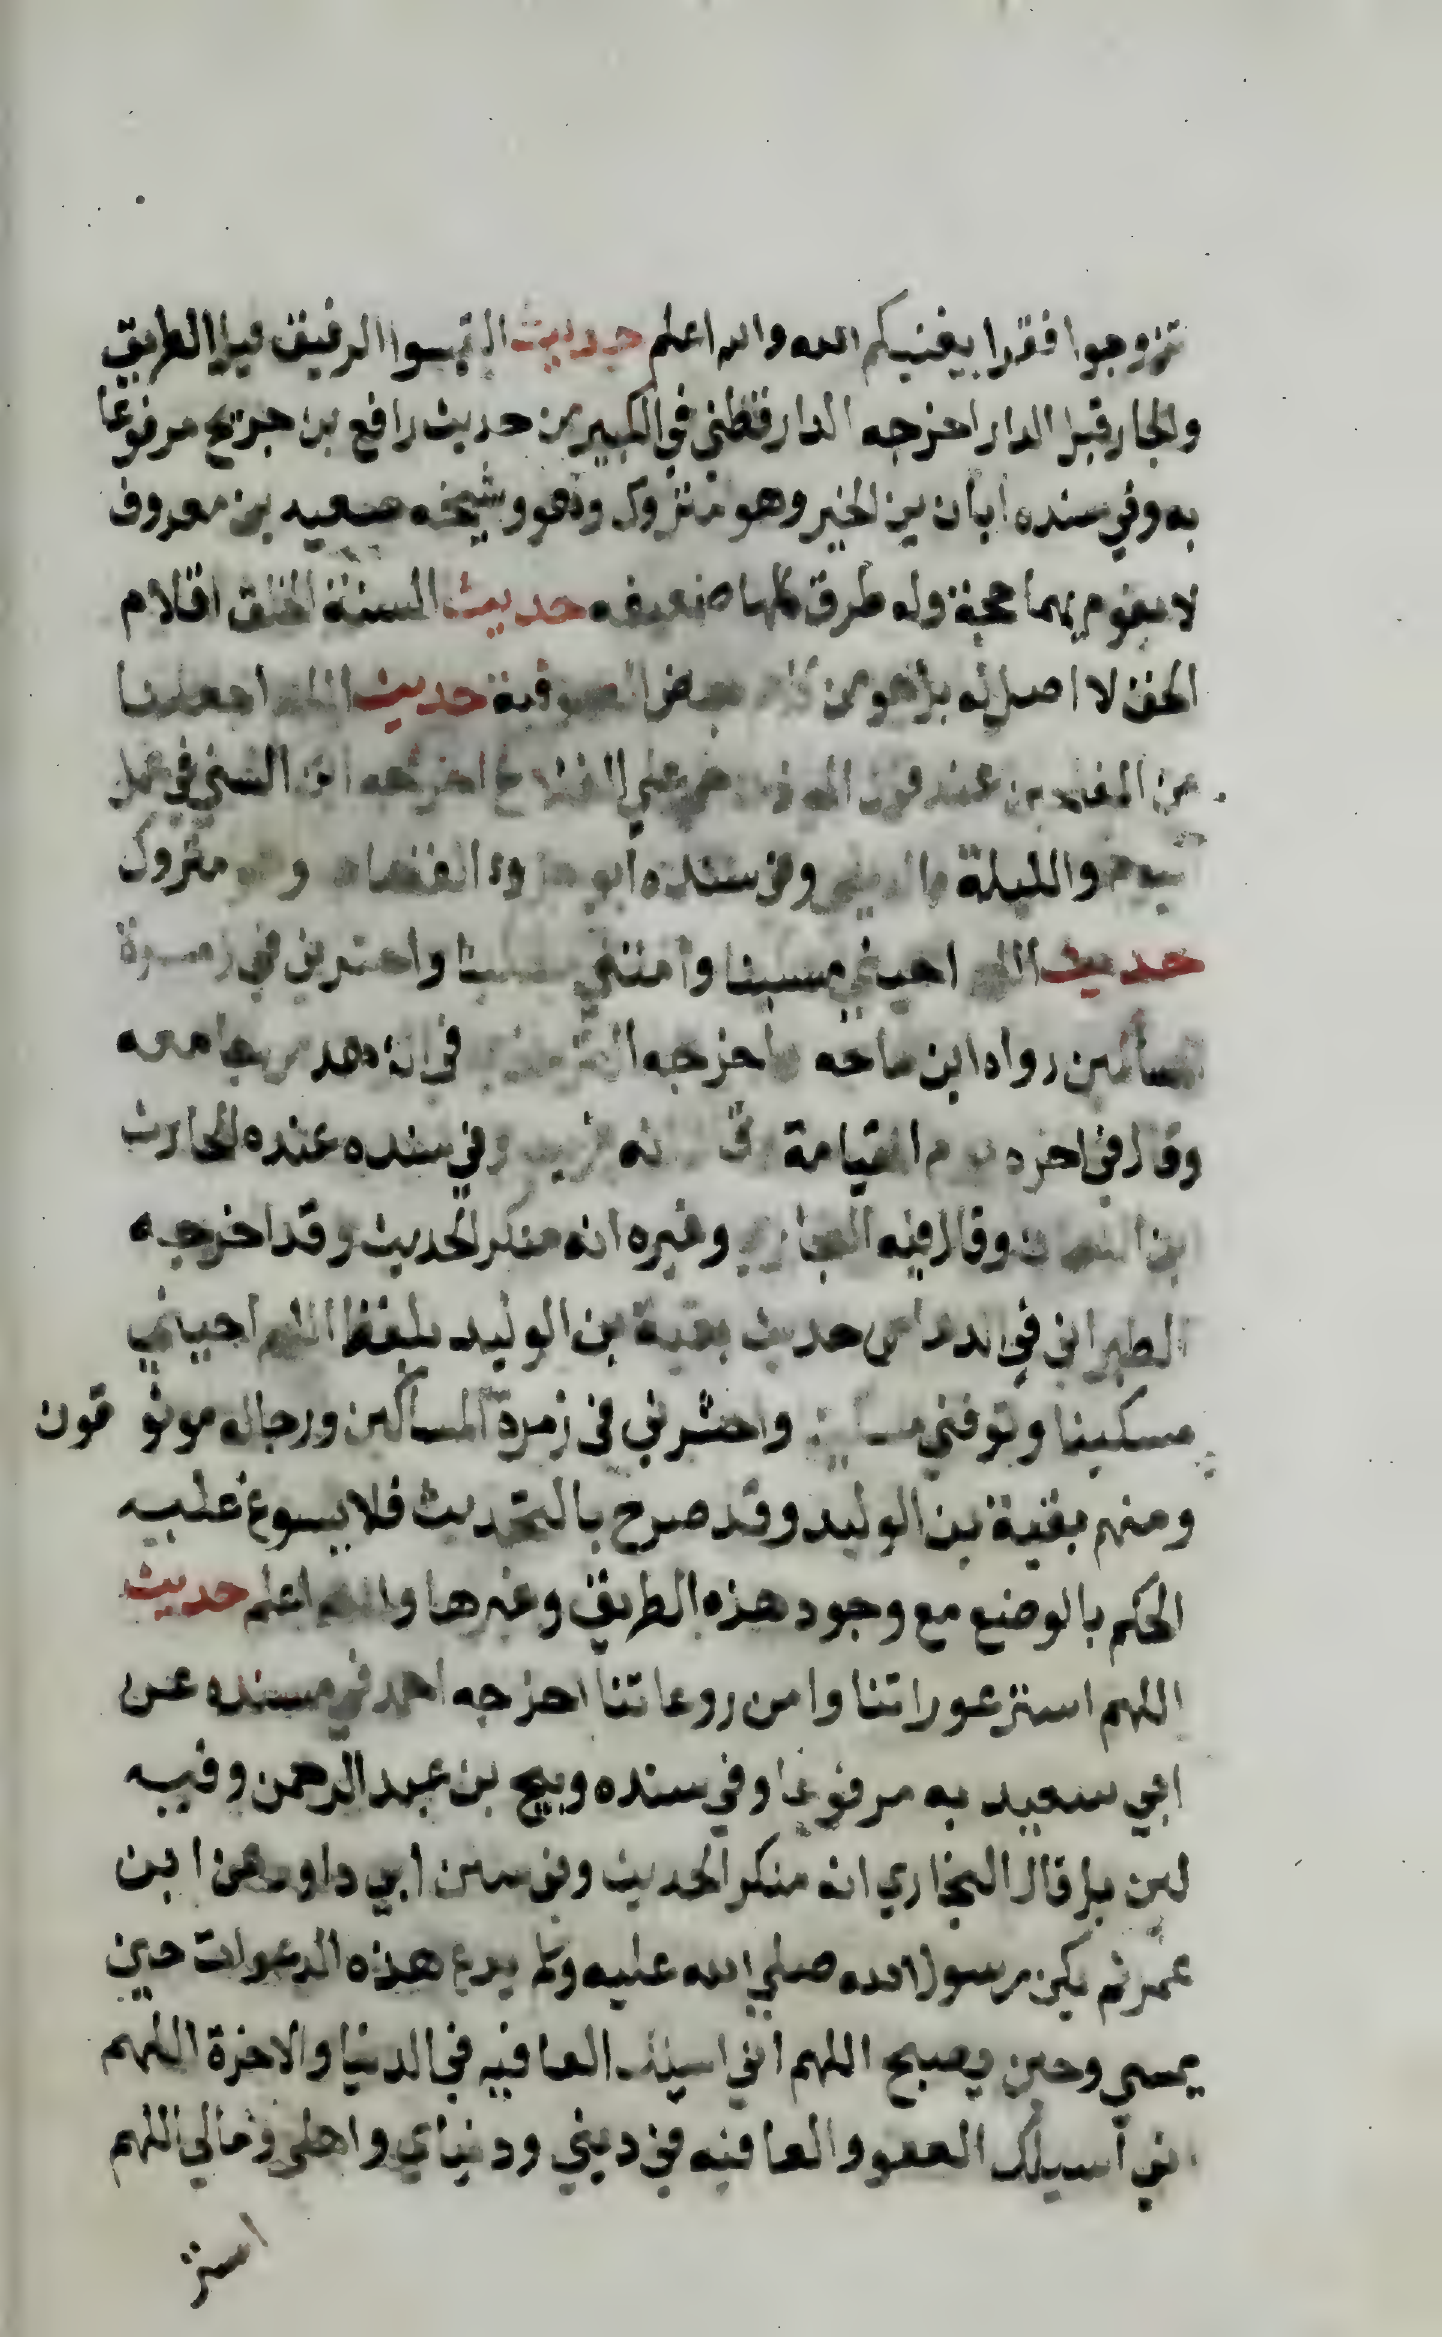 تزوجوا فقرا يغنيكم الله والله اعلم حديث التمسوا الرفيق قبل الطريق
والجار قبل الدار اخرجه الدارقطني في الكبير من حديث رافع بن جريج مرفوعا
به وفي سنده ابان بن الخير وهو متروك وهو وشيخه سعيد بن معروف
لا يقوم بهما حجة وله طرق كلها ضعيفه حديث السنة الخلق اقلام
الحق لا اصل له بل هو من بعض الصوفية حديث اللهم اجعلنا
من المفلحين عند قول الموذن حي على الفلاح اخرجه ابن السني في عمل
يوم والليلة وفي سنده ابو وهو متروك
حديث اللهم احيني مسكينا وامتني مسكينا واحشرني في زمرة
المساكين رواه ابن ماجه واخرجه الترمذي في الزهد من جامعه
وقال في اخره يوم القيامة وقال انه غريب وفي سنده عنده الحارث
ابن النعمان وقال فيه البخاري وغيره انه منكر الحديث وقد اخرجه
الطبراني في الدعا من حديث بقية بن الوليد بلفظ اللهم احييني
مسكينا وتوفني مسكينا واحشرني في زمرة المساكين ورجاله موثوقون
ومنهم بقية بن الوليد وقد صرح بالتحديث فلا يسوغ عليه
الحكم بالوضع مع وجود هذه الطريق وغيرها والله اعلم حديث
اللهم استر عوراتنا وامن روعاتنا اخرجه احمد في مسنده عن
ابي سعيد به مرفوعا وفي سنده وبيح بن عبد الرحمن وفيه
لين بل قال البخاري انه منكر الحديث وفي سنن ابي داود عن ابن
عمر لم يكن رسول الله صلي الله عليه وسلم يدع هذه الدعوات حين
يمسي وحين يصبح اللهم اني اسيلك العافيه في الدنيا والاخرة اللهم
اني اسيلك العفو والعافيه في ديني ودنياي واهلي ومالي اللهم
استر